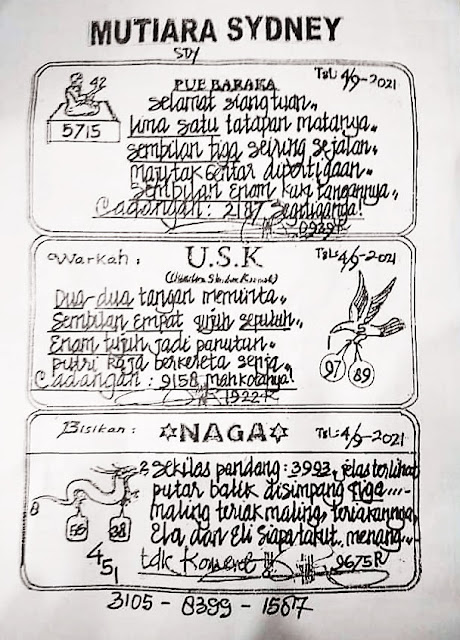 MUTIARA SYDNEY
SDY
PUE BARAKA
Tgl 4/9-2021
42
5715
Selamat siang tuan..
Lima satu tatapan matanya..
sembilan tiga seiring sejalan..
maju tak gentar dipertigaan..
Sembilan Enam kaki tangannya..
Cadangan : 2187 Segitiganya!
0939R
Warkah :
U.S.K
Tgl: 4/9-2021
Dua-dua tangan meminta..
Sembilan Empat tujuh sepuluh..
Enam tujuh jadi panutan..
putri Raja berkereta senja..
Cadangan : 9158 mahkotanya!
1922R
97 89
Bisikan :
NAGA
Tgl: 4/9-2021
Sekilas pandang : 3993, jelas terlihat
putar balik disimpang tiga ....
maling teriak maling, teriakannya
Ela dan Eli Siapa takut menang..
tdk Koment
9675R
8
2
56 38
451
3105 - 8399 - 1567